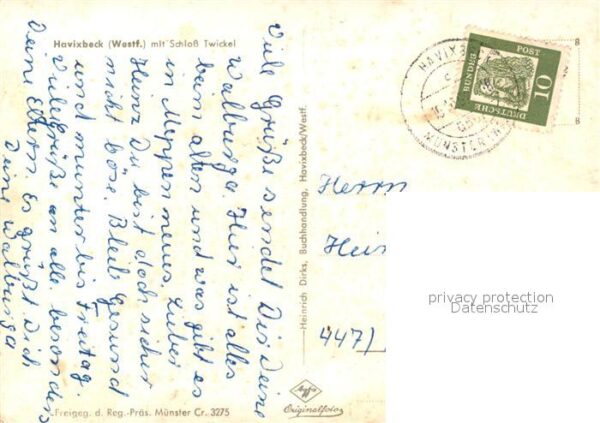 Havixbeck (Westf.) mit Schloß Twickel
Viele Grüße sendet Dir Deine
Walburga. Hier ist alles
beim alten und was gibt es
in Meppen neues. Lieber
Heinz Du bist doch sicher
nicht böse. Bleib Gesund
und munter bis Freitag.
Viele Grüße an alle besonders
Deine Eltern. Es grüßt Dich
Deine Walburga
Freigeg. d. Reg.-Präs. Münster Cr. 3275
Heinrich Dirks, Buchhandlung, Havixbeck/Westf.
Agfa
Originalfoto
DEUTSCHE BUNDESPOST
10
Herrn
Hein
447/
privacy protection
Datenschutz